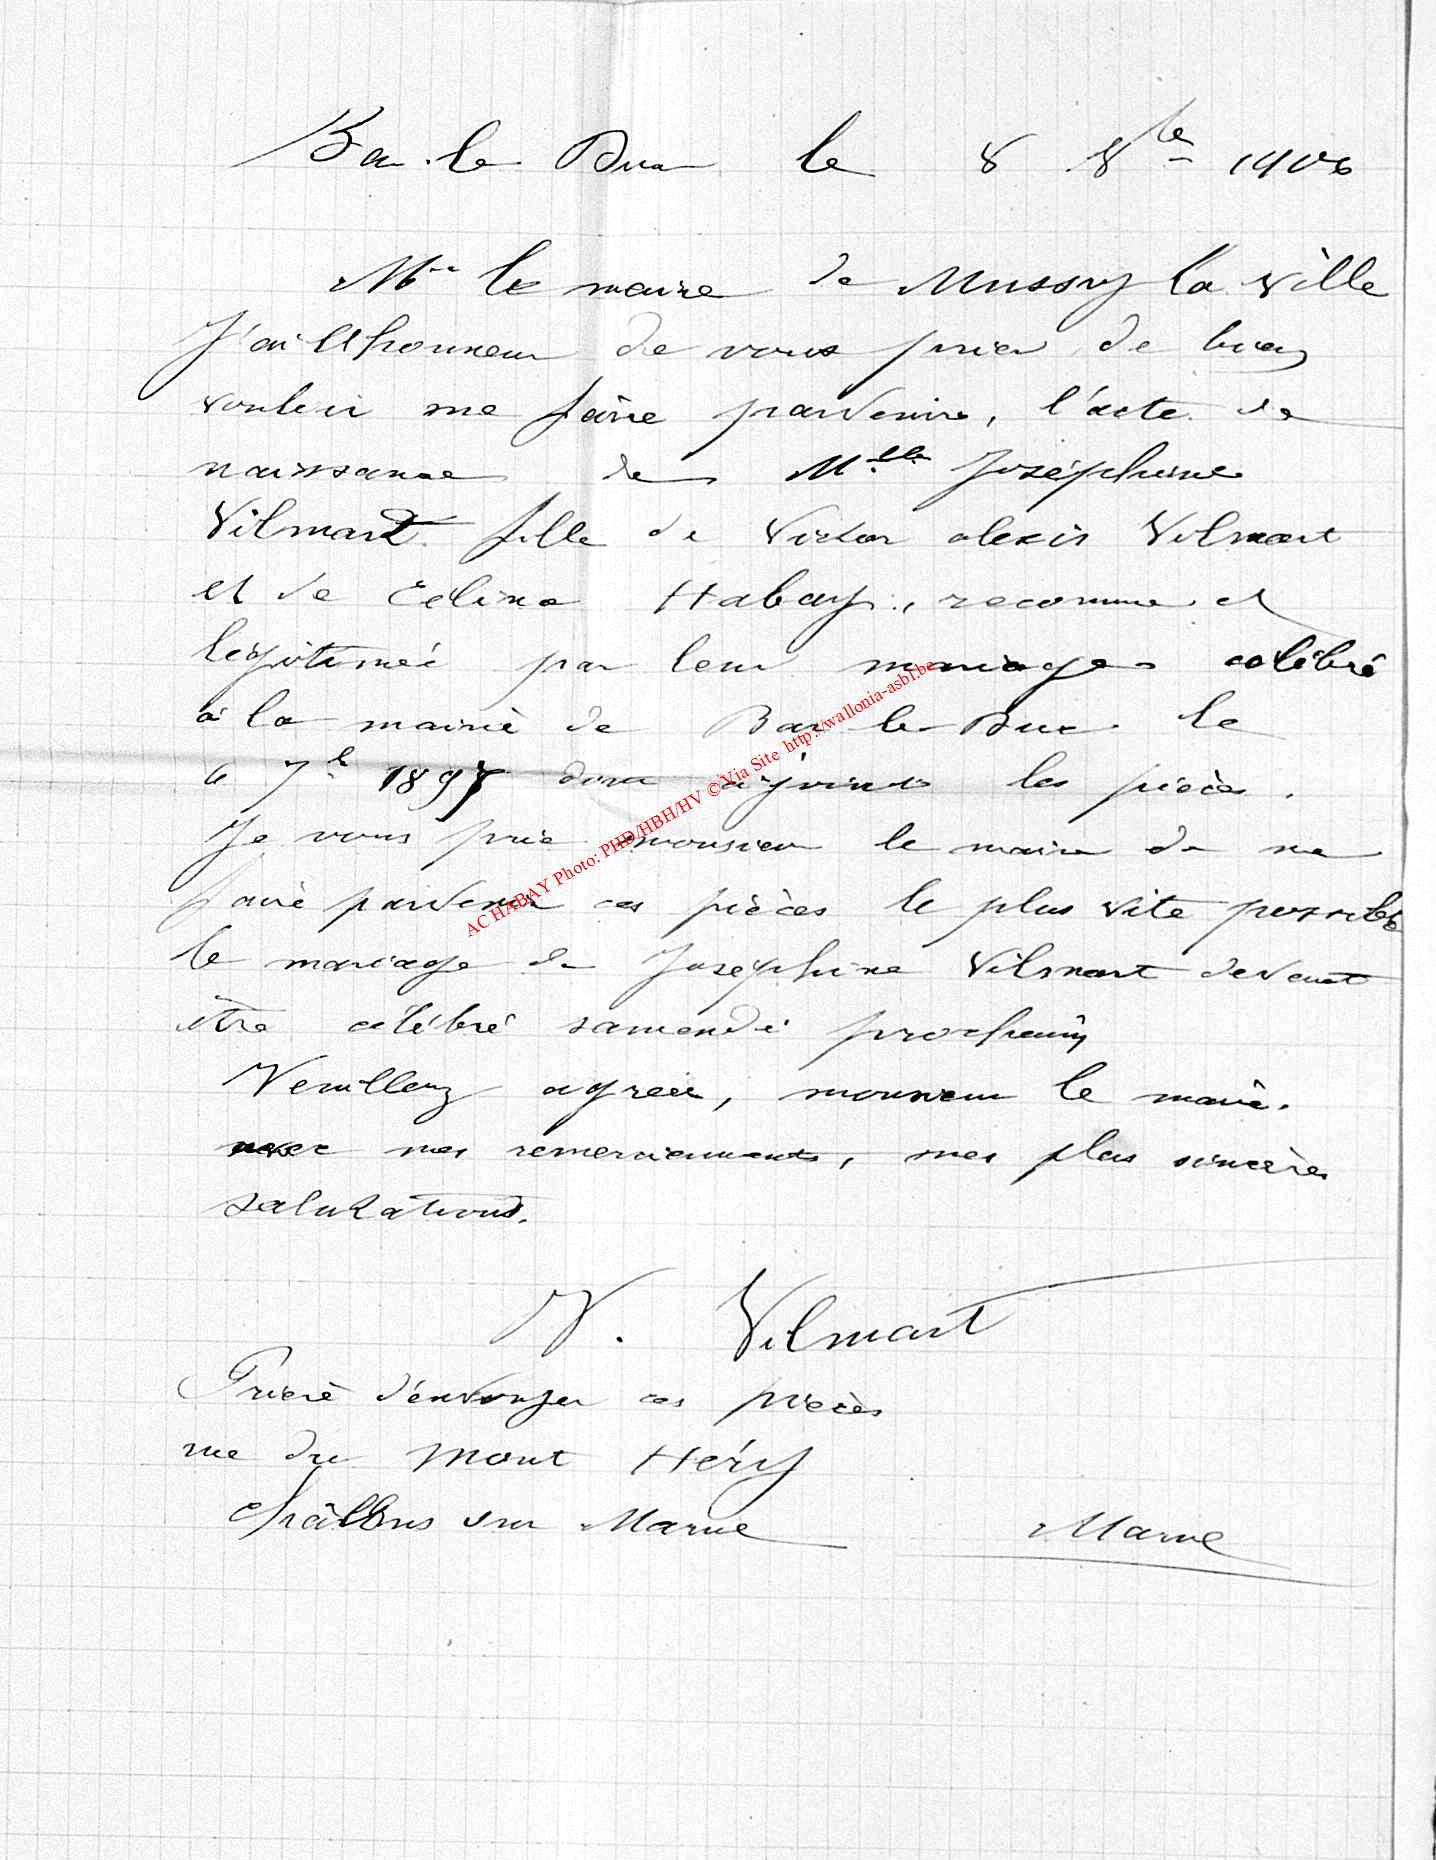 Bar-le-Duc le 8 8bre 1906
Mr le maire de Mussy la Ville
J'ai l'honneur de vous prier de bien
vouloir me faire parvenir, l'acte de
naissance de Mlle Joséphine
Vilmart fille de Victor alexis Vilmart
et de Célina Habay, reconnue et
légitimée par leur mariage célébré
à la mairie de Bar-le-Duc le
7bre 1897 les pièces.
Je vous prie monsieur le maire de me
faire parvenir ces pièces le plus vite possible
le mariage de Joséphine Vilmart devant
être célébré samedi prochain
Veuillez agréer, monsieur le maire.
avec mes remerciements, mes plus sincères
salutations.
V. Vilmart
Prière d'envoyer ces pièces
rue du Mont Héry
Châlons sur Marne Marne
AC HABAY Photo: PHD/HBH/HV © Via Site http://wallonia-asbl.be